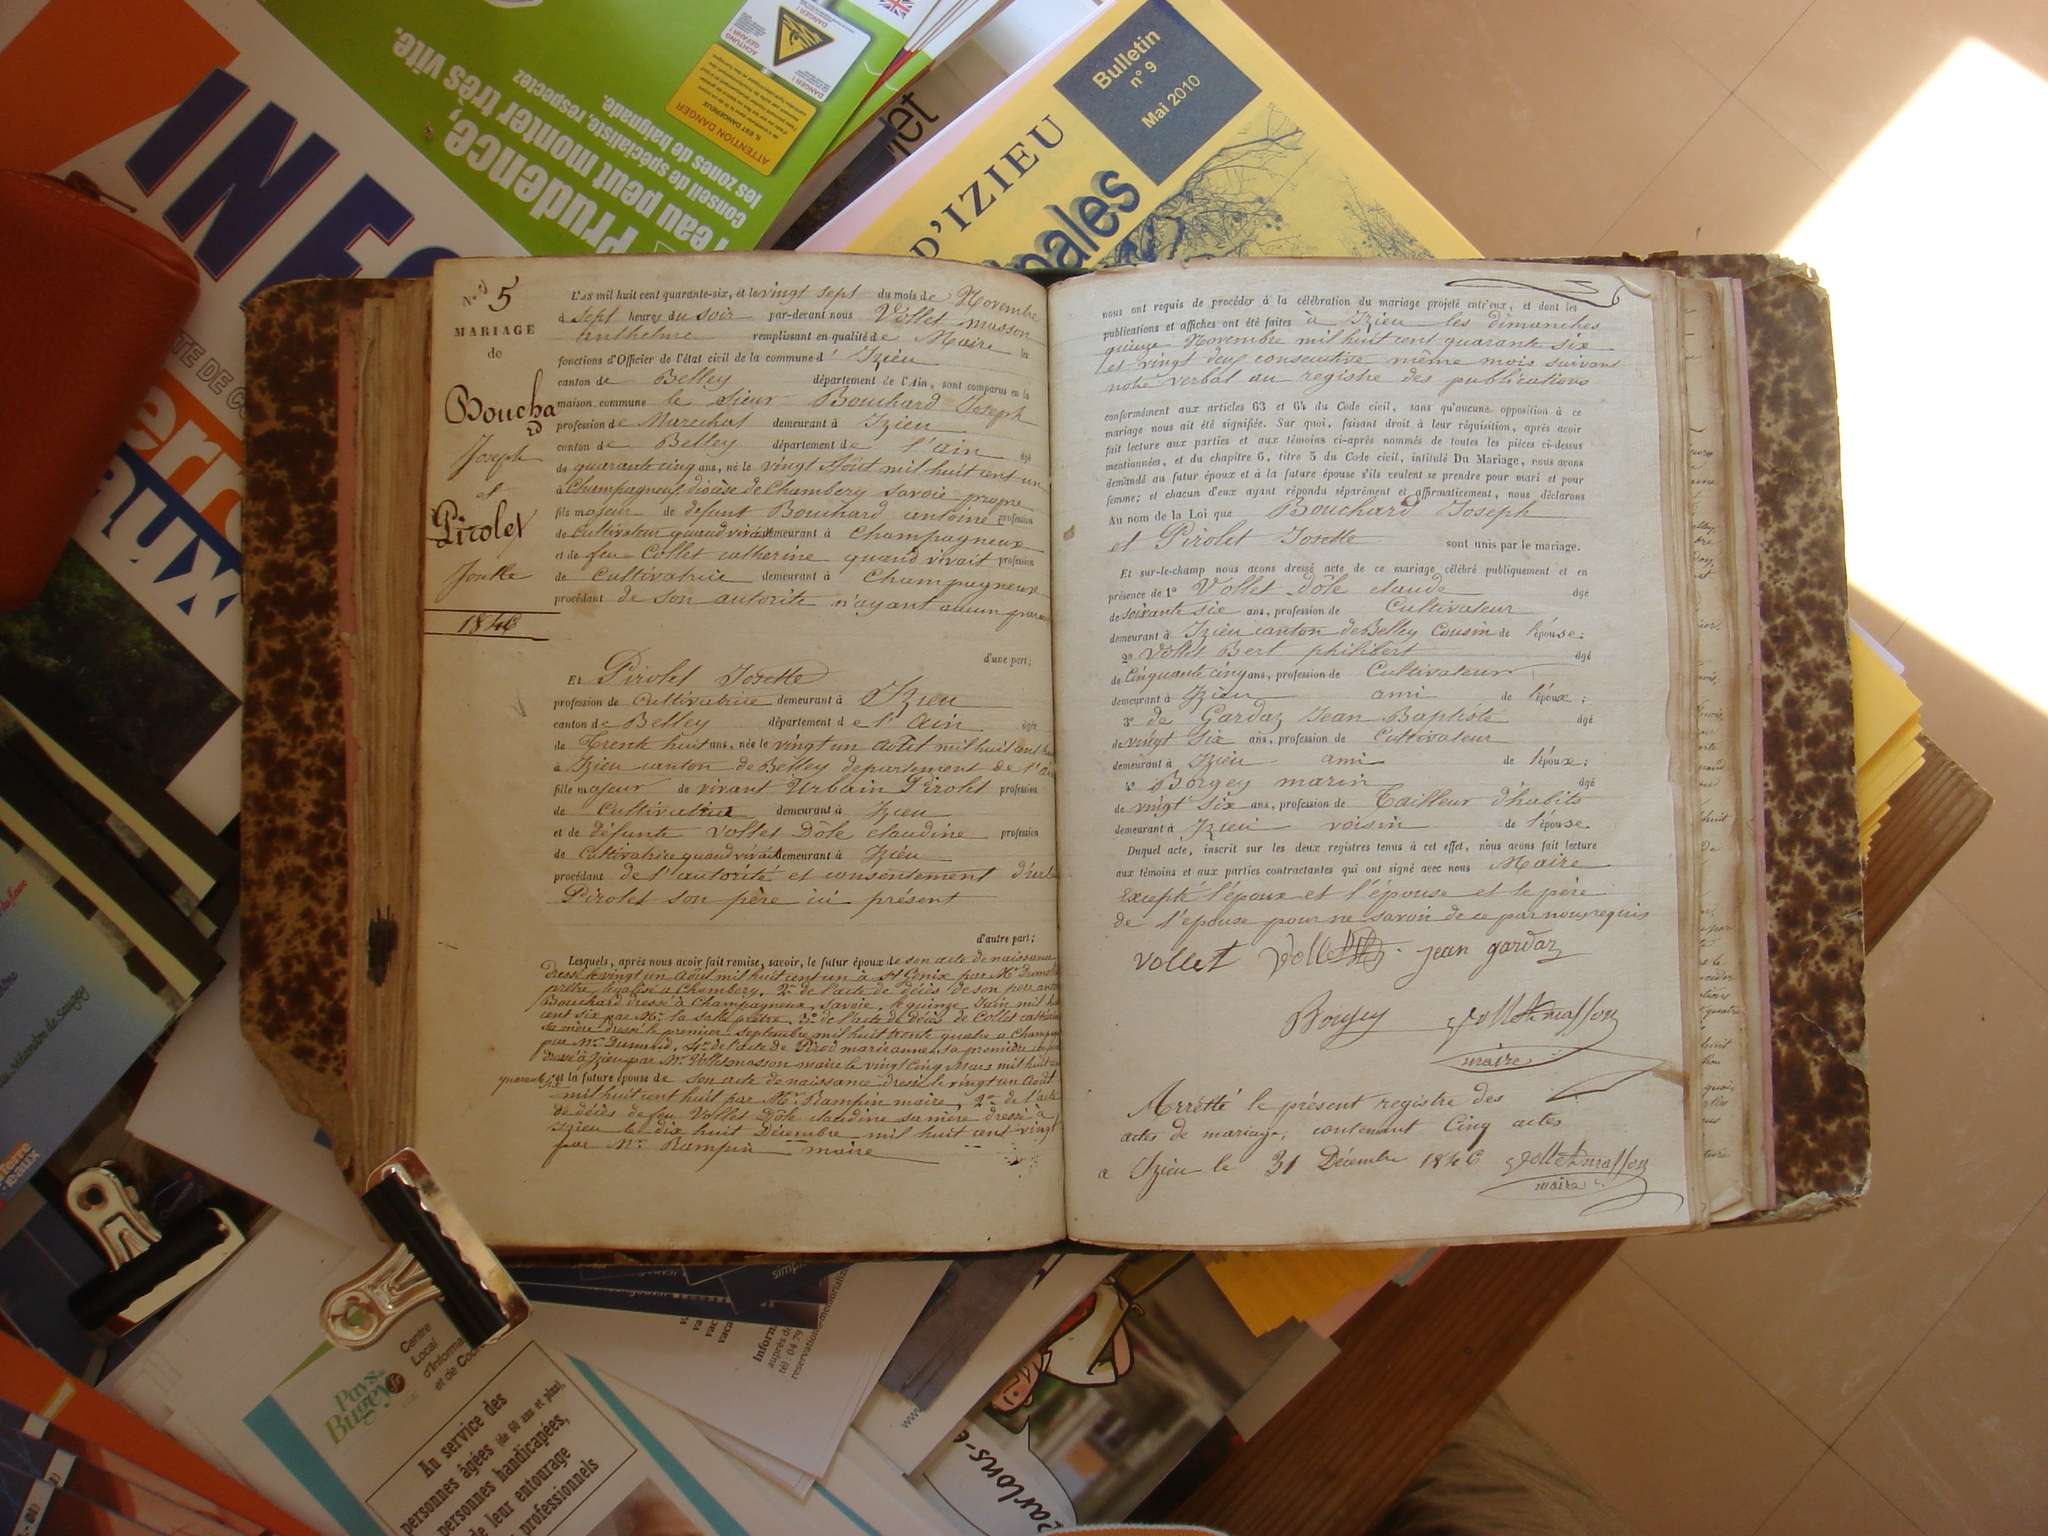 INFO
Prudence,
l'eau peut monter très vite.
conseil de spécialiste, respectez
les zones de baignade.
ATTENTION DANGER
ACHTUNG GEFAHR !
DANGER !
Bulletin
n° 9
Mai 2010
D'IZIEU
pales
N° 5
MARIAGE
de
Boucha
rd
Joseph
et
Pirolet
Josette
1846
L'AN mil huit cent quarante-six, et le vingt sept du mois de Novembre
à sept heures du soir par-devant nous Vollet masson
anthelme remplissant en qualité de Maire les
fonctions d'Officier de l'état civil de la commune d' Izieu
canton de Belley département de l'Ain, sont comparus en la
maison commune le Sieur Bouchard Joseph
profession de Marechal demeurant à Izieu
canton de Belley département de l'ain âgé
de quarante cinq ans, né le vingt Aout mil huit cent un
à Champagneux diocèse de Chambery savoie propre
fils majeur de defunt Bouchard antoine profession
de cultivateur quand vivait demeurant à Champagneux
et de feu Collet catherine quand vivait profession
de Cultivatrice demeurant à Champagneux
procédant de son autorite n'ayant aucun
d'une part;
Et Pirolet Josette
profession de cultivatrice demeurant à Izieu
canton de Belley département de l'Ain âgée
de Trente huit ans, née le vingt un août mil huit cent
à Izieu canton de Belley departement de l'
fille majeur de vivant Urbain Pirolet profession
de Cultivateur demeurant à Izieu
et de défunte Vollet Dôle claudine profession
de Cultivatrice quand vivait demeurant à Izieu
procédant de l'autorité et consentement
Pirolet son père ici présent
d'autre part;
Lesquels, après nous avoir fait remise, savoir, le futur époux de son acte de naissance
dressé le vingt un Août mil huit cent un à St Genix par Mr
prêtre légalisé a Chambery, 2° de l'acte de décès de son père
Bouchard dressé à Champagneux, Savoie, le quinze Juin mil
cent six par Mr la salle prêtre, 3° de l'acte de décès de Collet
sa mère dressé le premier septembre mil huit trente quatre a
par Mr Dunand, 4° de l'acte de marieanne sa première
dressé à Izieu par Mr Volletmasson maire le vingt Cinq Mars mil huit
et la future épouse de son acte de naissance dressé le vingt un Août
mil huit cent huit par Mr Rampin maire, 2° de l'acte
de décès de feu Vollet Dôle claudine sa mère dressé à
Izieu le dix huit Décembre mil huit cent vingt
par Mr Rampin maire
nous ont requis de procéder à la célébration du mariage projeté entr'eux, et dont les
publications et affiches ont été faites à Izieu les dimanches
quinze Novembre mil huit cent quarante six
et vingt deux consecutive même mois suivant
notre verbal au registre des publications
conformément aux articles 63 et 64 du Code civil, sans qu'aucune opposition à ce
mariage nous ait été signifiée. Sur quoi, faisant droit à leur réquisition, après avoir
fait lecture aux parties et aux témoins ci-après nommés de toutes les pièces ci-dessus
mentionnées, et du chapitre 6, titre 5 du Code civil, intitulé Du Mariage, nous avons
demandé au futur époux et à la future épouse s'ils veulent se prendre pour mari et pour
femme; et chacun d'eux ayant répondu séparément et affirmativement, nous déclarons
Au nom de la Loi que Bouchard Joseph
et Pirolet Josette sont unis par le mariage.
Et sur-le-champ nous avons dressé acte de ce mariage célébré publiquement et en
présence de 1° Vollet dôle claude âgé
de soixante six ans, profession de Cultivateur
demeurant à Izieu canton de Belley Cousin de l'épouse;
2° Vollet Bert philibert âgé
de Cinquante cinq ans, profession de Cultivateur
demeurant à Izieu ami de l'époux;
3° de Gardaz Jean Baptiste âgé
de vingt six ans, profession de Cultivateur
demeurant à Izieu ami de l'époux;
4° Borgey marin âgé
de vingt six ans, profession de Tailleur d'habits
demeurant à Izieu voisin de l'épouse.
Duquel acte, inscrit sur les deux registres tenus à cet effet, nous avons fait lecture
aux témoins et aux parties contractantes qui ont signé avec nous Maire
Excepté l'époux et l'épouse et le père
de l'épouse pour ne savoir de ce par nous requis
Vollet Vollet jean gardaz
Borgey Volletmasson
maire
Arretté le présent registre des
actes de mariage, contenant Cinq actes
a Izieu le 31 Décembre 1846 Volletmasson
maire
Pays
Bugey
Centre
Local
d'Informa
et de Coo
Au service des
personnes âgées (de 60 ans et plus),
personnes handicapées,
de leur entourage
professionnels
Parlons-